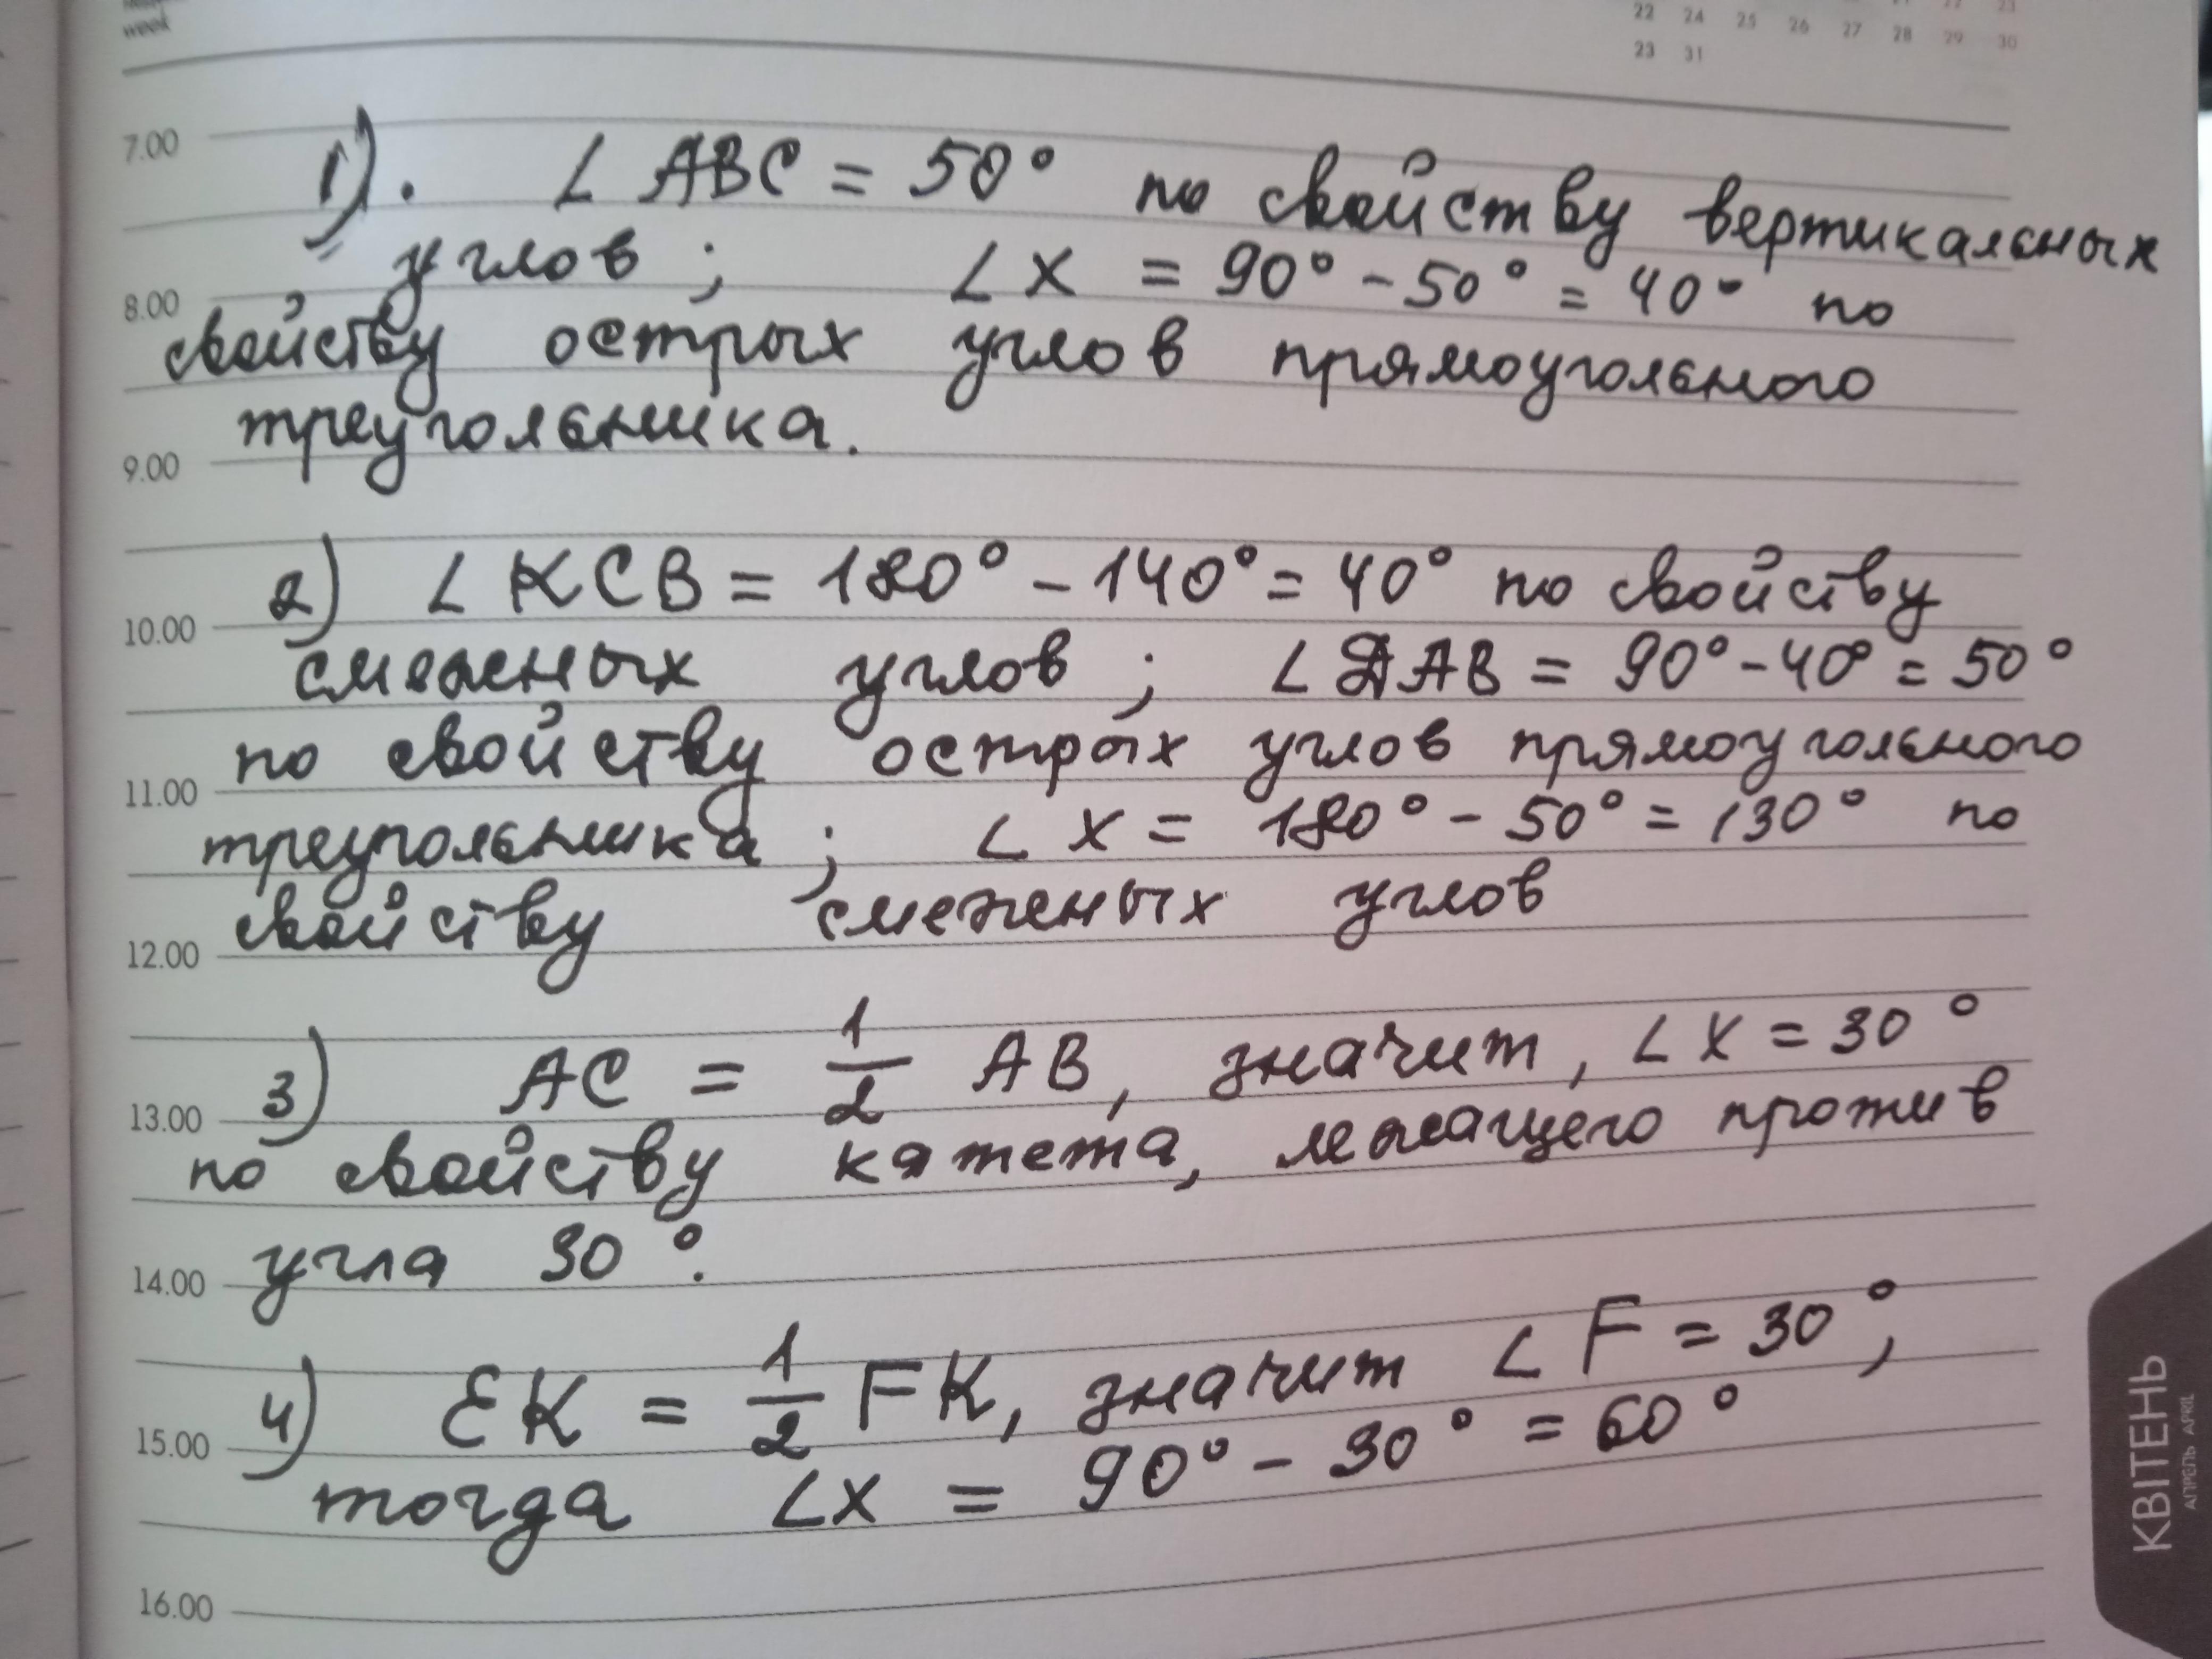 week
22 24 25 26 27 28 29 30
23 31
7.00
1). ∠ ABC = 50° по свойству вертикальных
углов ; ∠ X = 90° - 50° = 40° по
8.00
свойству острых углов прямоугольного
треугольника.
9.00
2) ∠ KCB = 180° - 140° = 40° по свойству
10.00
смежных углов ; ∠ DAB = 90° - 40° = 50°
по свойству острых углов прямоугольного
11.00
треугольника ; ∠ X = 180° - 50° = 130° по
свойству смежных углов
12.00
3) AC = 1/2 AB, значит, ∠ X = 30°
13.00
по свойству катета, лежащего против
угла 30°.
14.00
4) EK = 1/2 FK, значит ∠ F = 30°;
15.00
тогда ∠X = 90° - 30° = 60°
16.00
КВІТЕНЬ
АПРЕЛЬ APRIL